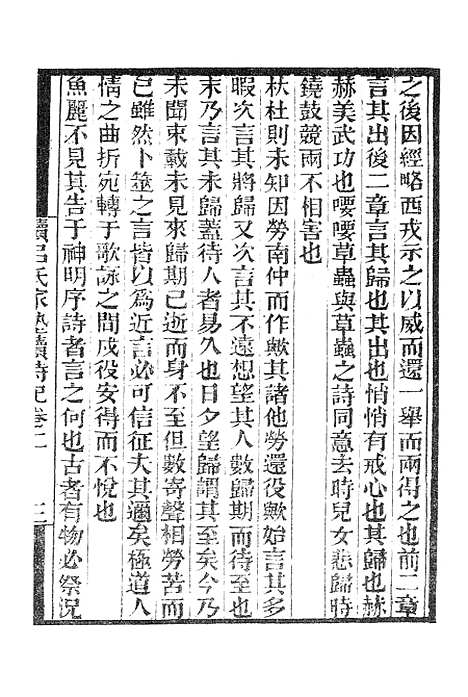 之後因經略西戎示之以威而還一舉而兩得之也前二章
言其出後二章言其歸也其出也悄悄有戒心也其歸也赫
赫美武功也喓喓草蟲與草蟲之詩同意去時兒女悲歸時
鐃鼓競兩不相害也
杕杜則未知因勞南仲而作歟其諸他勞還役歟始言其多
暇次言其將歸又次言其不遠想望其人數歸期而待至也
末乃言其未歸蓋待人者易久也日夕望歸謂其至矣今乃
未聞束載未見來歸期已逝而身不至但數寄聲相勞苦而
已雖然卜筮之言皆以為近言必可信征夫其邇矣極道人
情之曲折宛轉于歌詠之間戍役安得而不悅也
魚麗不見其告于神明序詩者言之何也古者有物必祭況
續呂氏家塾讀詩記卷二